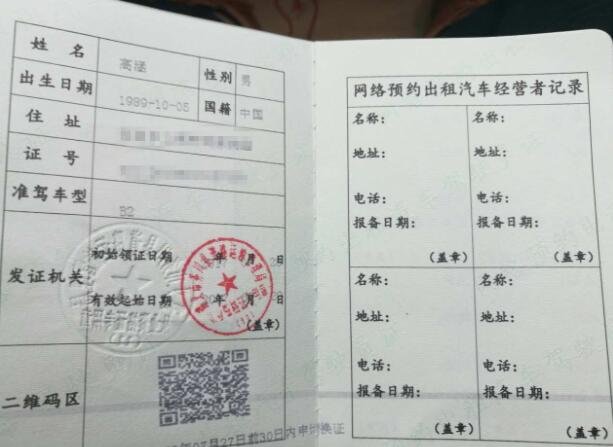 姓名 高涵 性别 男
出生日期 1989-10-05 国籍 中国
住址
证号
准驾车型 B2
发证机关
初始领证日期 年 月 日
有效起始日期 年 月 日
(盖章)
二维码区
07月27日前30日内申请换证
网络预约出租汽车经营者记录
名称: 名称:
地址: 地址:
电话: 电话:
报备日期: 报备日期:
(盖章) (盖章)
名称: 名称:
地址: 地址:
电话: 电话:
报备日期: 报备日期:
(盖章) (盖章)